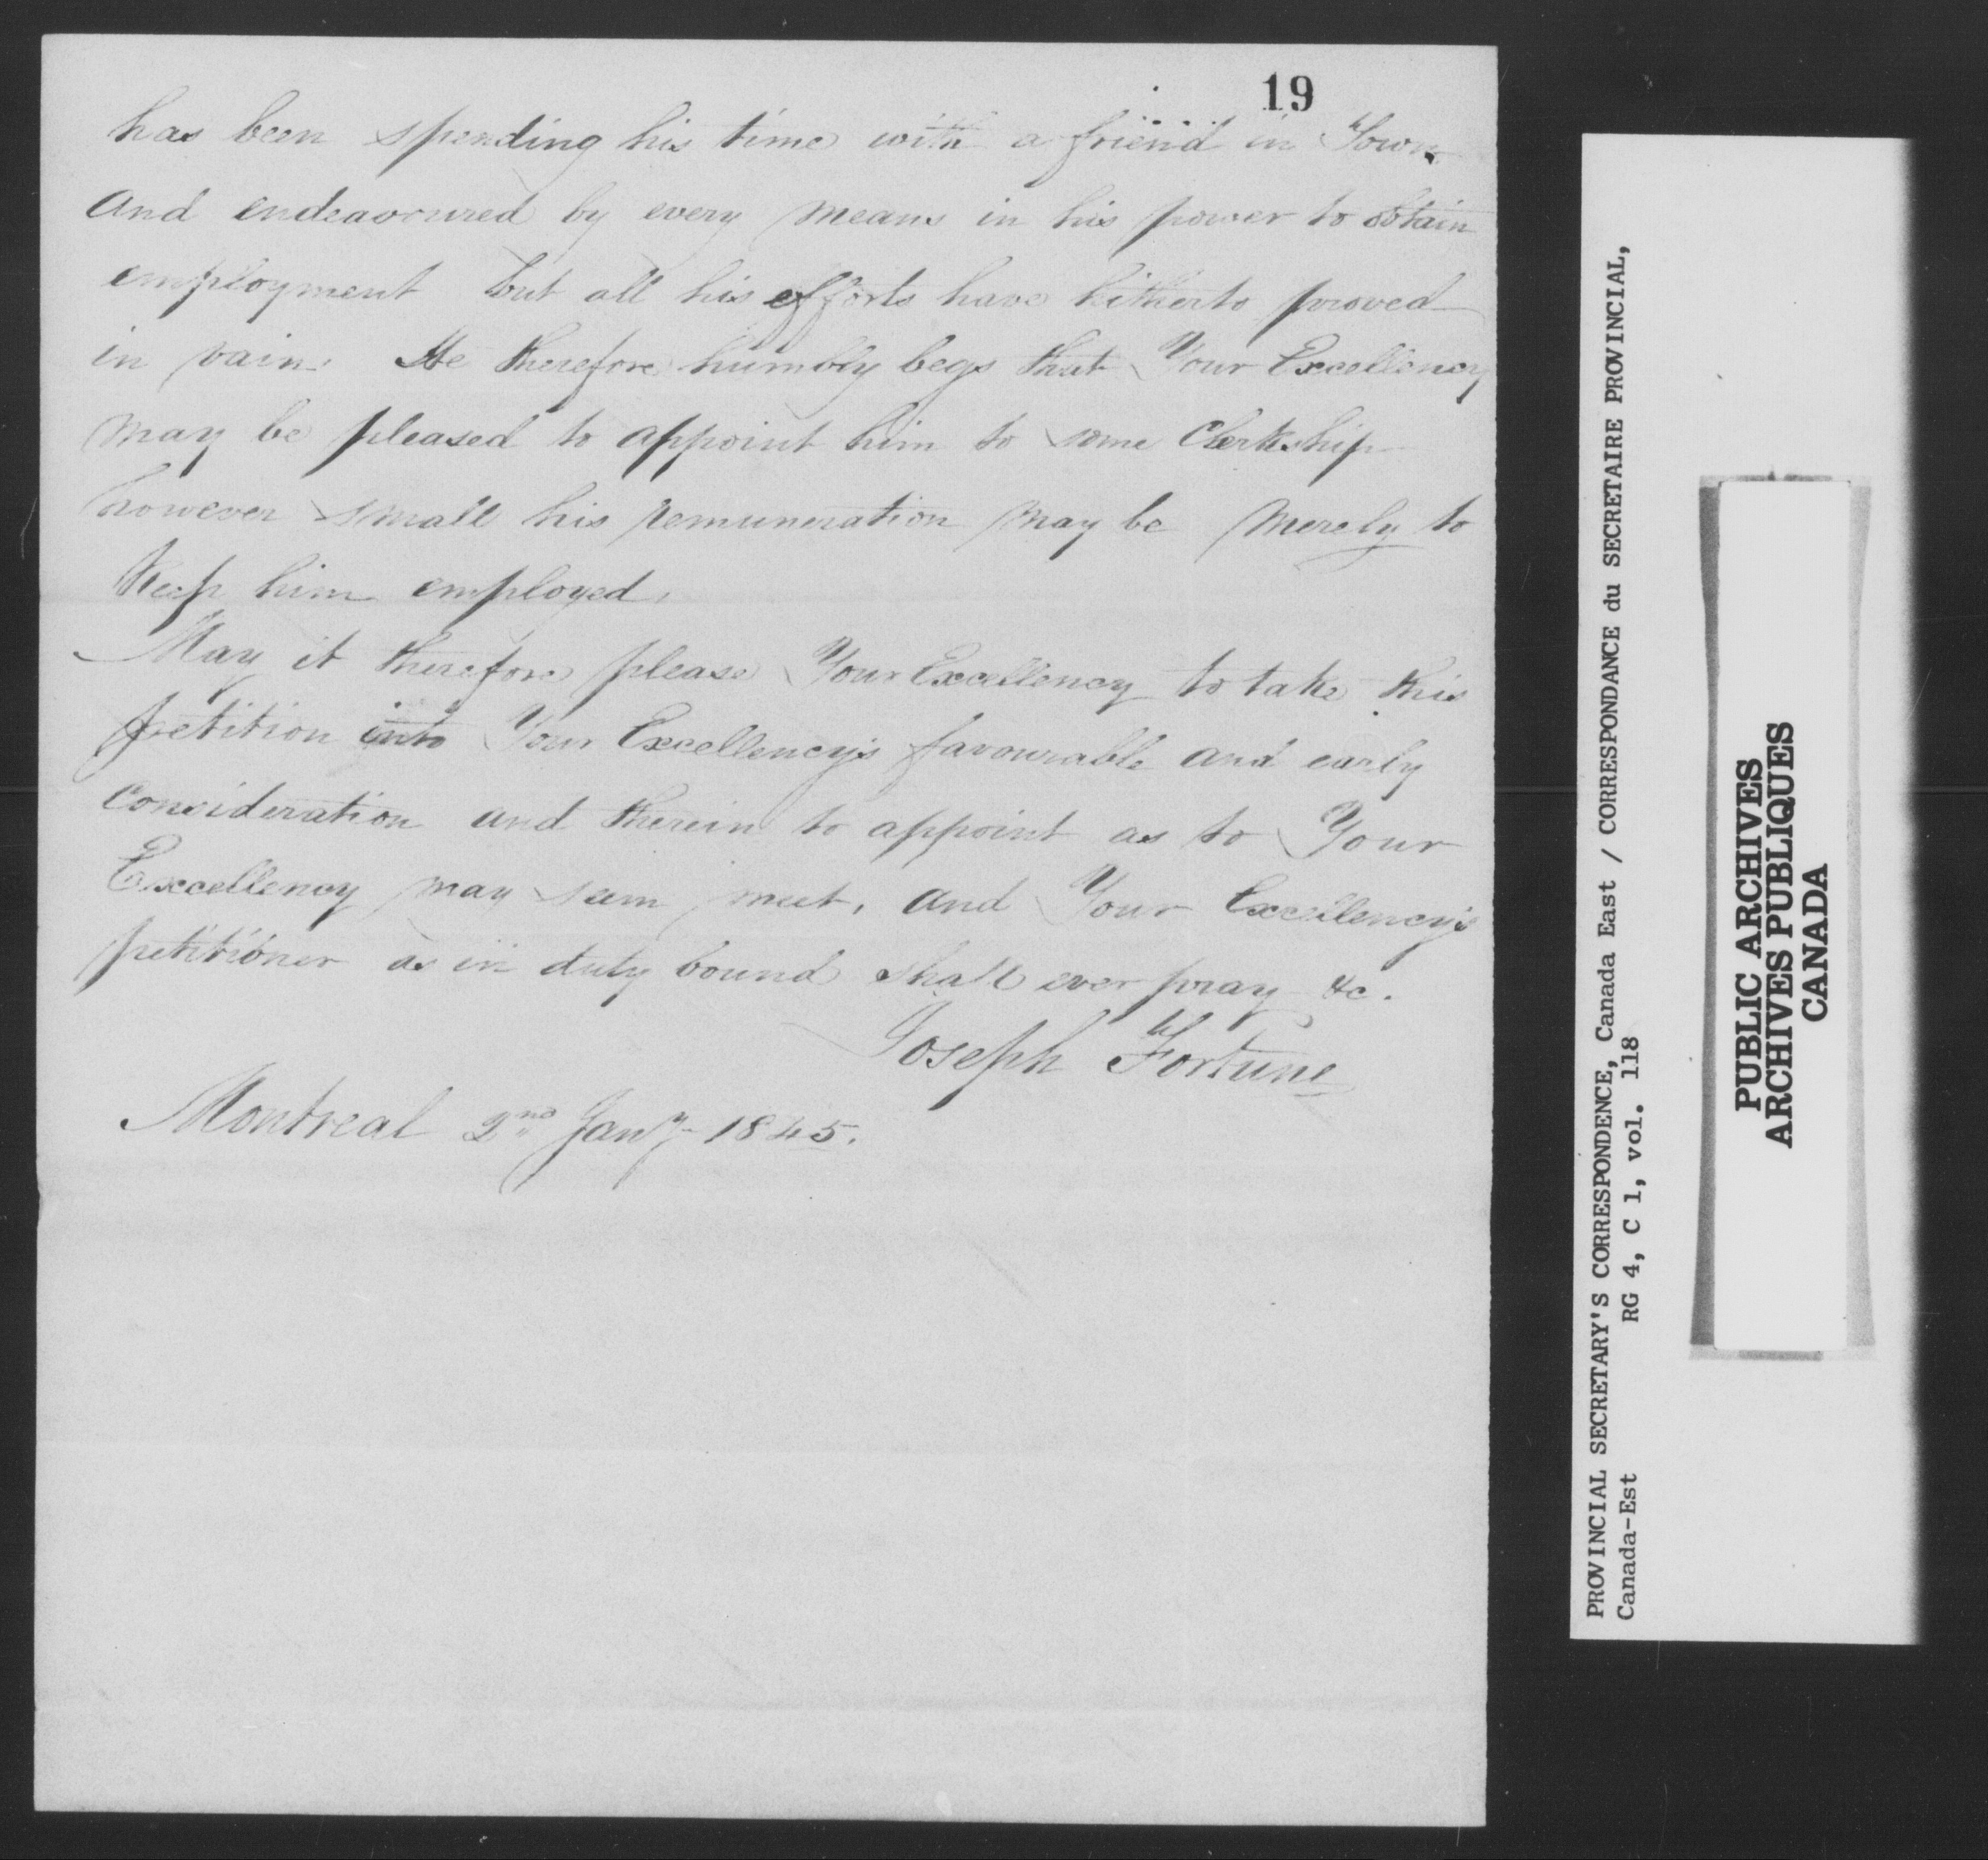 19
has been spending his time with a friend in Town
and endeavoured by every means in his power to obtain
employment but all his efforts have hitherto proved
in vain. He therefore humbly begs that Your Excellency
may be pleased to appoint him to some Clerkship
however small his remuneration may be merely to
keep him employed.
May it therefore please Your Excellency to take this
petition into Your Excellency's favourable and early
Consideration and therein to appoint as to Your
Excellency may seem meet, and Your Excellency's
petitioner as in duty bound shall ever pray &c.
Joseph Fortune
Montreal 2nd Jany 1845.
PROVINCIAL SECRETARY'S CORRESPONDENCE, Canada East / CORRESPONDANCE du SECRETAIRE PROVINCIAL,
Canada-Est RG 4, C 1, vol. 118
PUBLIC ARCHIVES
ARCHIVES PUBLIQUES
CANADA